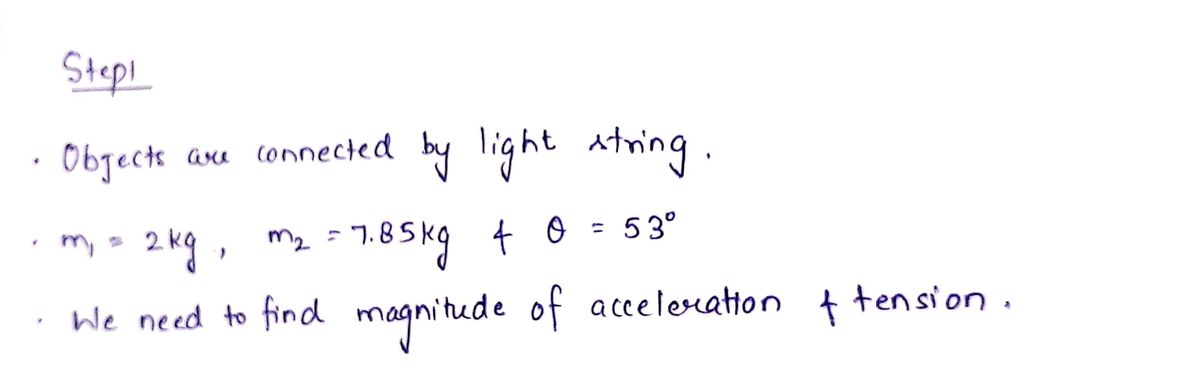 Step1
· Objects are connected by light string.
· m₁ = 2kg, m₂ = 7.85kg & θ = 53°
· We need to find magnitude of acceleration & tension.